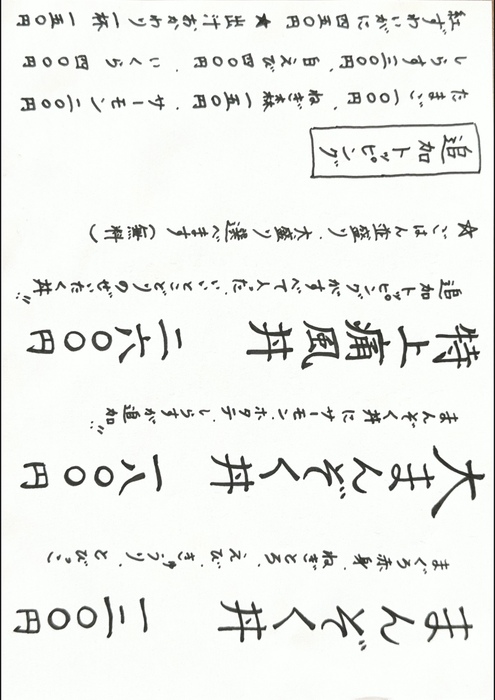 まんぞく丼 一二〇〇円
まぐろ赤身、ねぎとろ、えび、きゅうり、とびっこ
大まんぞく丼 一八〇〇円
まんぞく丼にサーモン、ホタテ、しらすが追加!!
特上痛風丼 二六〇〇円
追加トッピングがすべて入った、いいとこどりのぜいたく丼!!
☆ごはん並盛り、大盛り選べます(無料)
追加トッピング
たまご一〇〇円、ねぎ森一五〇円、サーモン二〇〇円
しらす二〇〇円、白えび四〇〇円、いくら四〇〇円
紅ずわいがに四五〇円 ★出汁おかわり一杯一五〇円